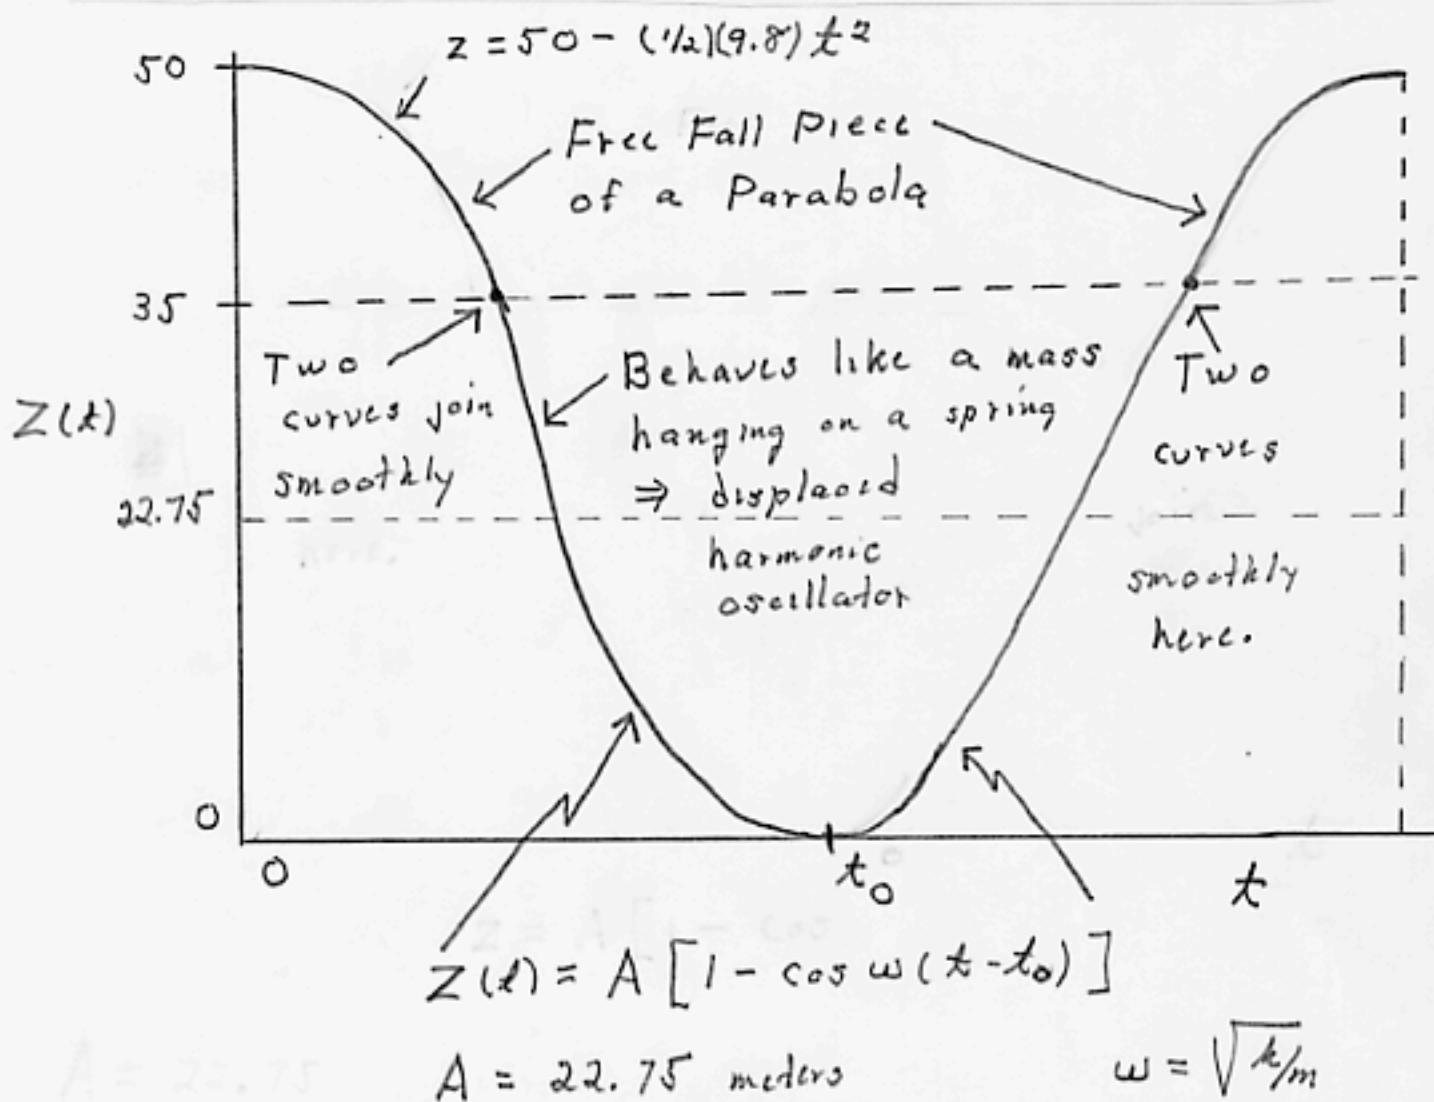 z = 50 - (1/2)(9.8) t²
50
Free Fall Piece
of a Parabola
35
Two
curves join
smoothly
Behaves like a mass
hanging on a spring
⇒ displaced
harmonic
oscillator
Two
curves
smoothly
here.
Z(t)
22.75
0
0
t₀
t
Z(t) = A [1 - cos ω(t-t₀)]
A = 22.75 meters
ω = √k/m